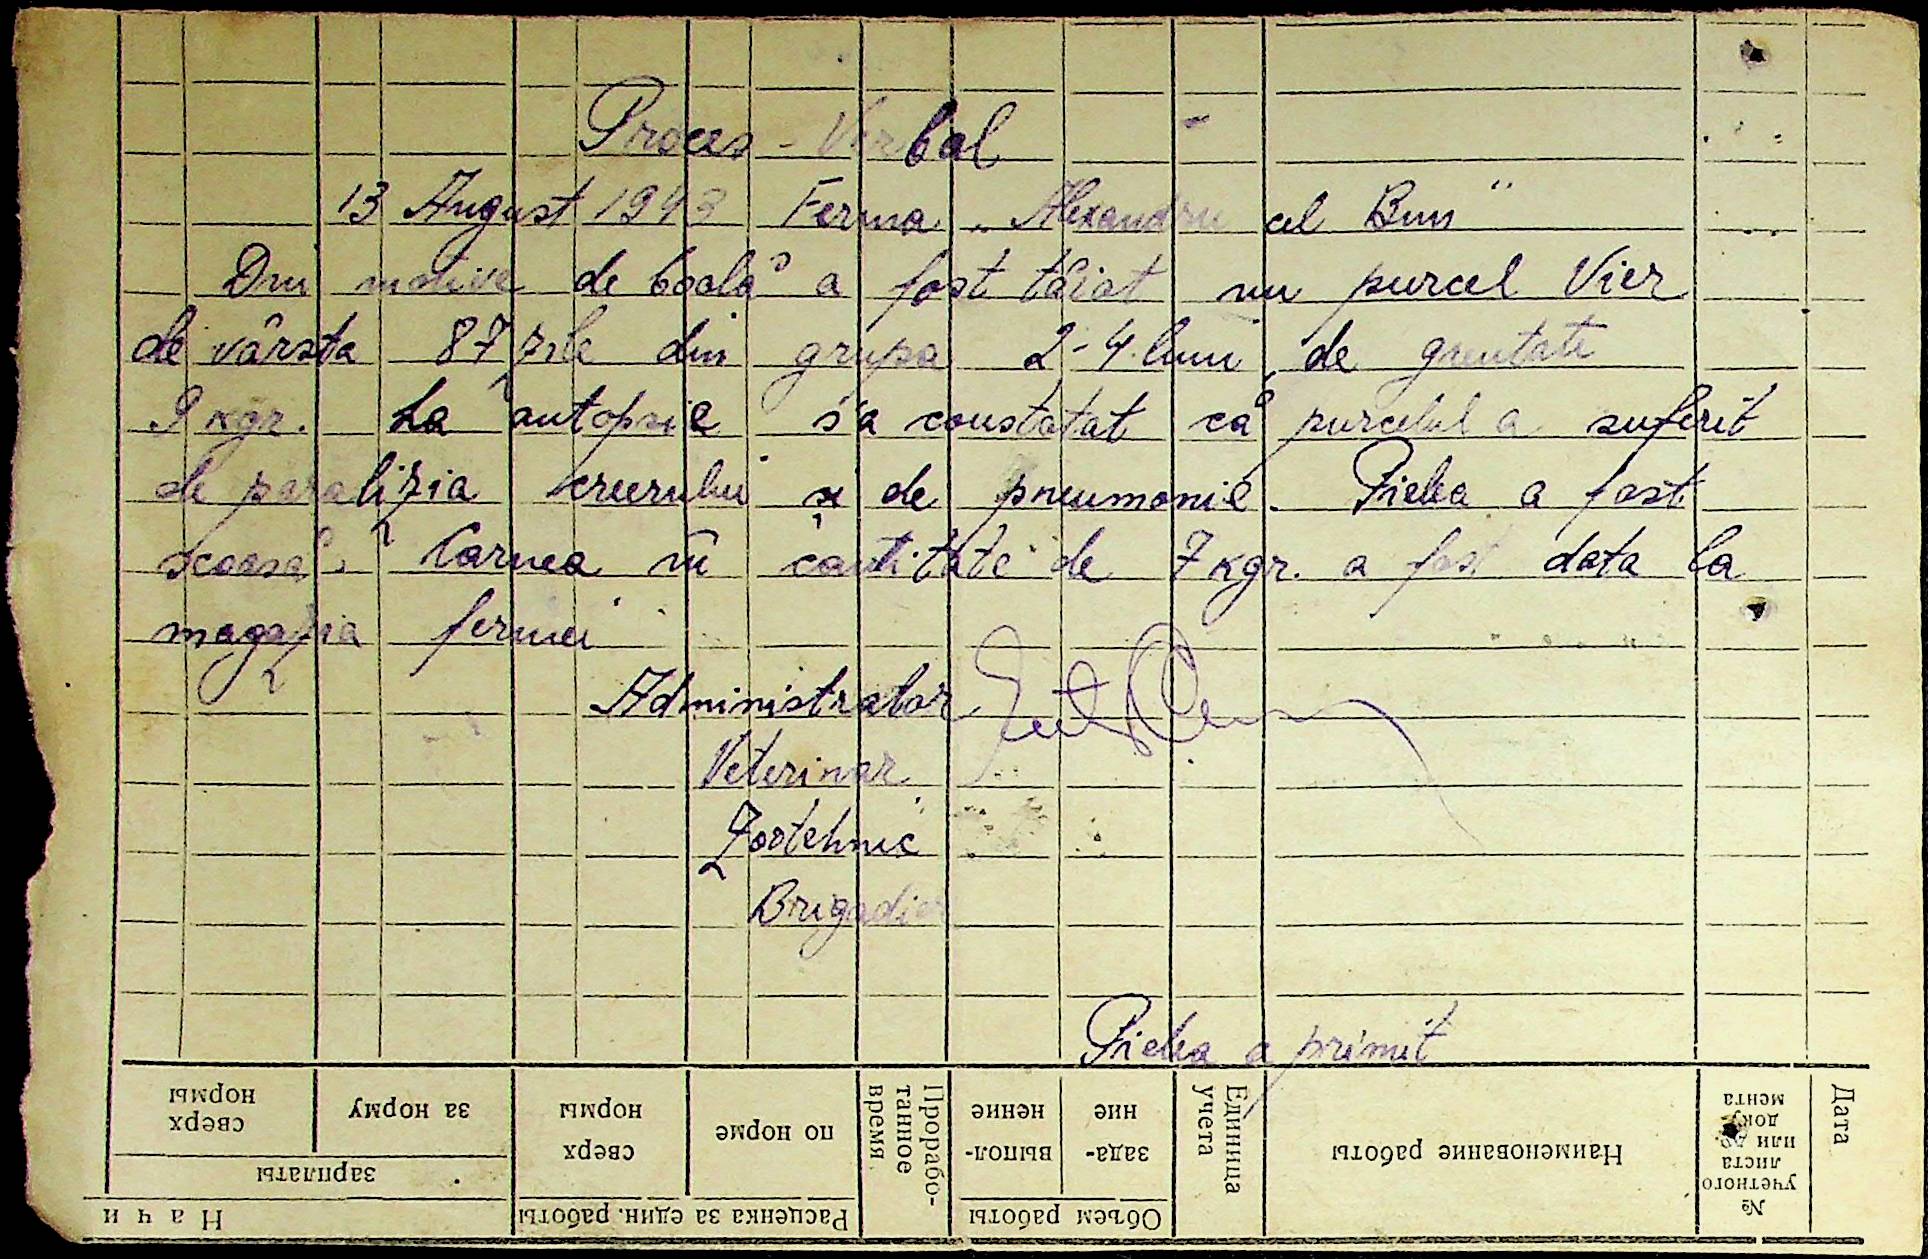 Proces - Verbal
13 August 1943 Ferma „Alexandru cel Bun"
Din motive de boală a fost tăiat un purcel Vier
de vârsta 87 zile din grupa 2-4 luni de greutate
9 kgr. La autopsie s'a constatat că purcelul a suferit
de paralizia creerului și de pneumonie. Pielea a fost
scoasă. Carnea în cantitate de 7 kgr. a fost data la
magazia fermei
Administrator
Veterinar
Zootehnic
Brigadier
Pielea a primit
Дата
№ учетного листа или доку мента
Наименование работы
Единица учета
Объем работы
зада- ние
выпол- нение
Прорабо- танное время
Расценка за един. работы
по норме
сверх нормы
Начи
зарплаты
за норму
сверх нормы